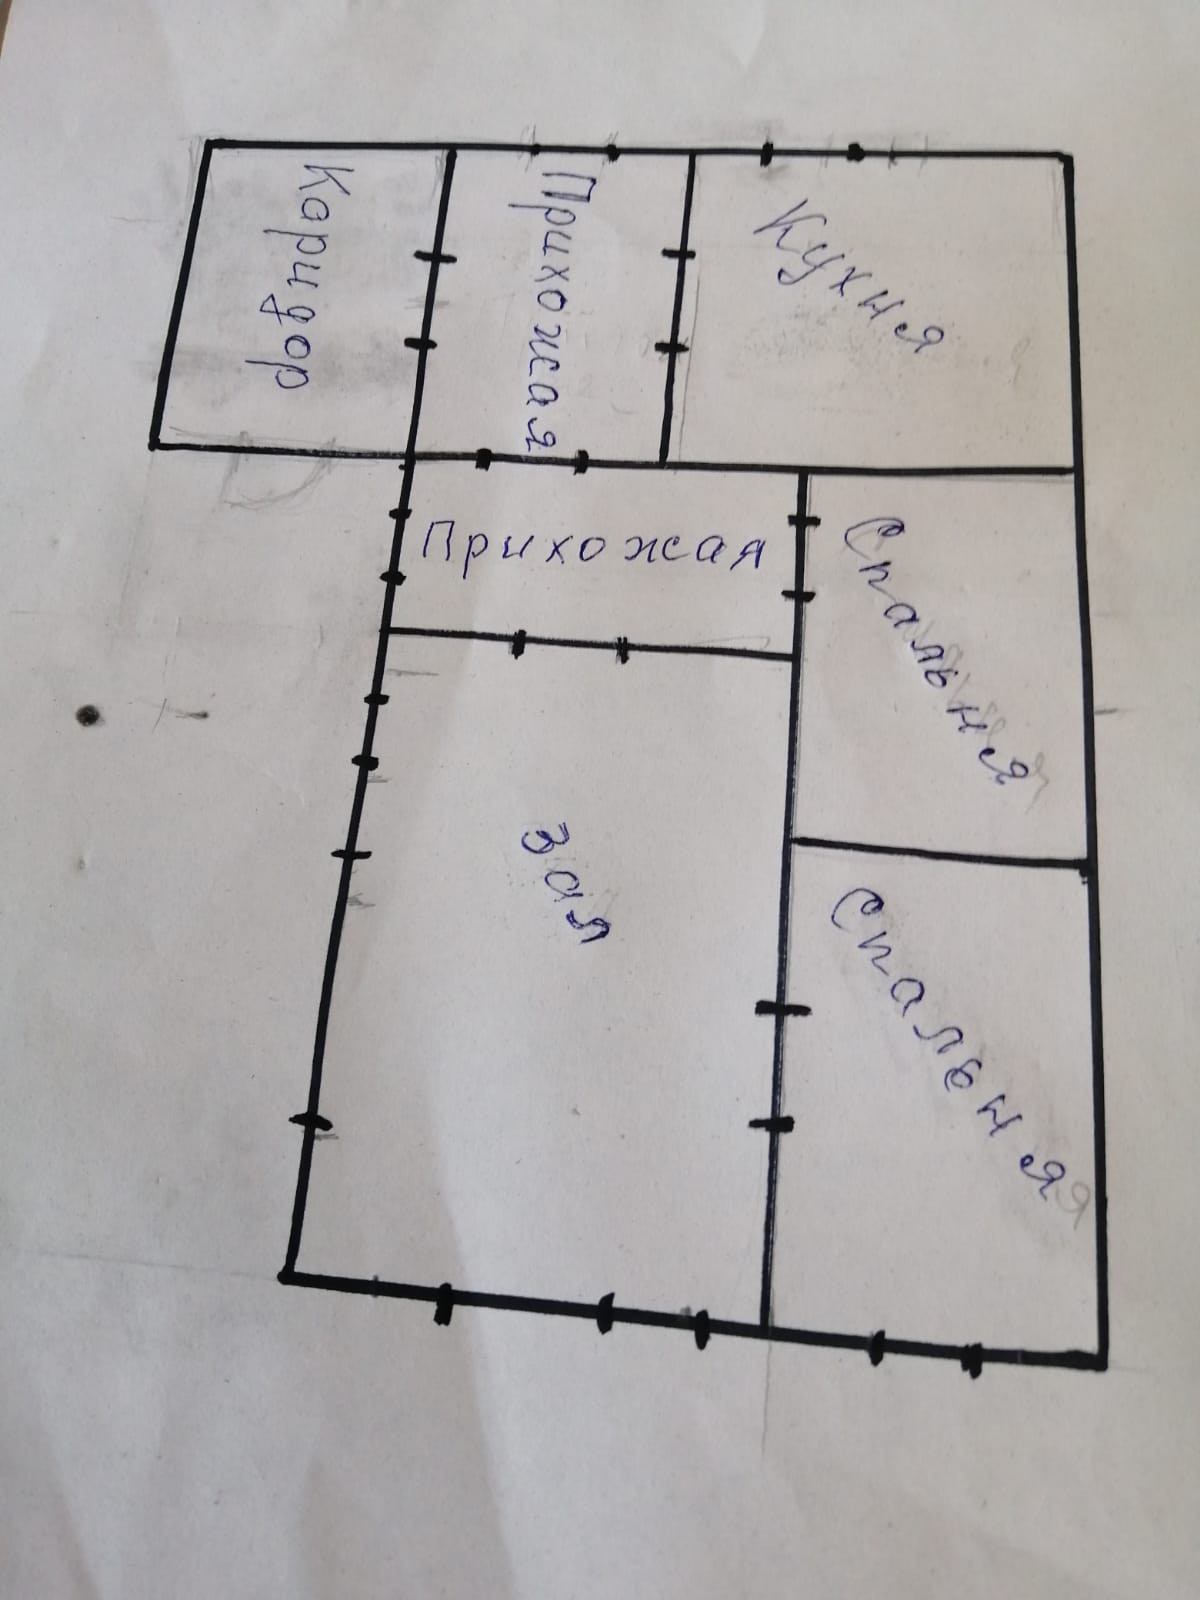 Каридор
Прихожая
Кухня
Прихожая
Спальня
Зал
Спальня